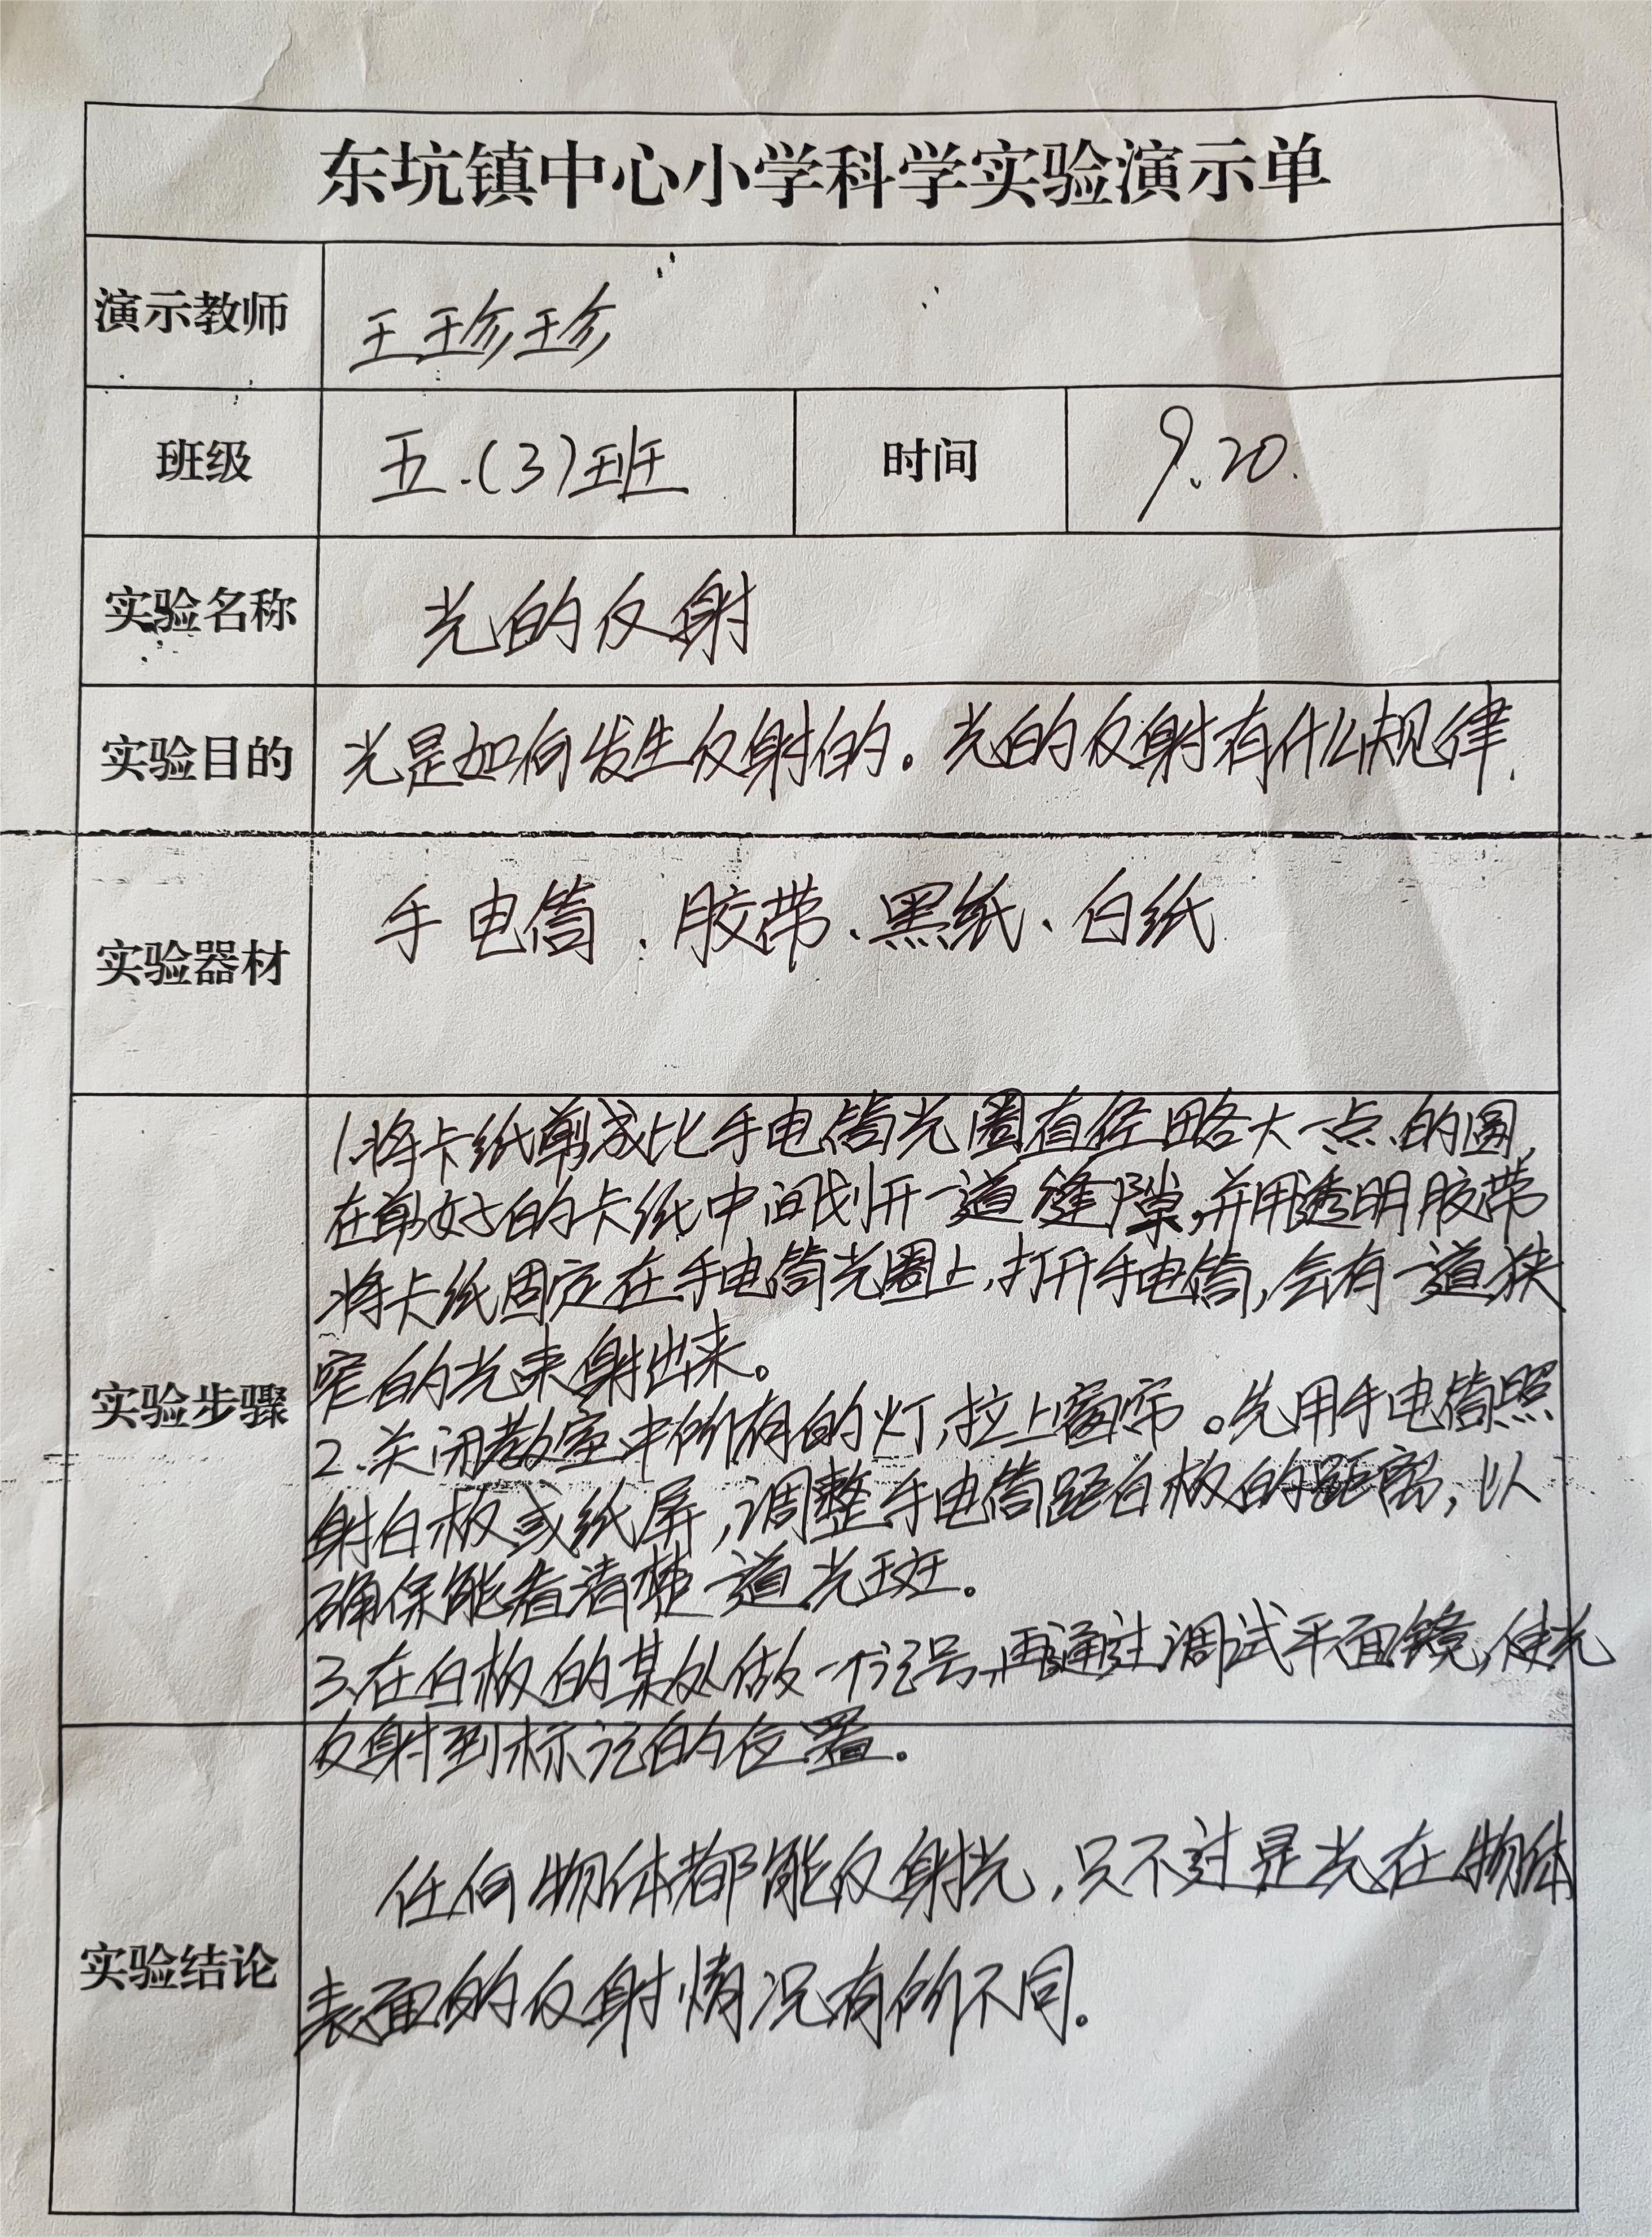 东坑镇中心小学科学实验演示单
演示教师 王珍珍
班级 五.(3)班 时间 9.20.
实验名称 光的反射
实验目的 光是如何发生反射的。光的反射有什么规律.
实验器材 手电筒、胶带、黑纸、白纸
1.将卡纸剪成比手电筒光圈直径略大一点的圆,
在剪好的卡纸中间划开一道缝隙,并用透明胶带
将卡纸固定在手电筒光圈上,打开手电筒,会有一道狭
窄的光束射出来。
实验步骤
2.关闭教室中所有的灯,拉上窗帘。先用手电筒照
射白板或纸屏,调整手电筒距白板的距离,以
确保能看清楚一道光斑。
3.在白板的某处做一个记号,再通过调试平面镜,使光
反射到标记的位置。
任何物体都能反射光,只不过是光在物体
实验结论
表面的反射情况有所不同。